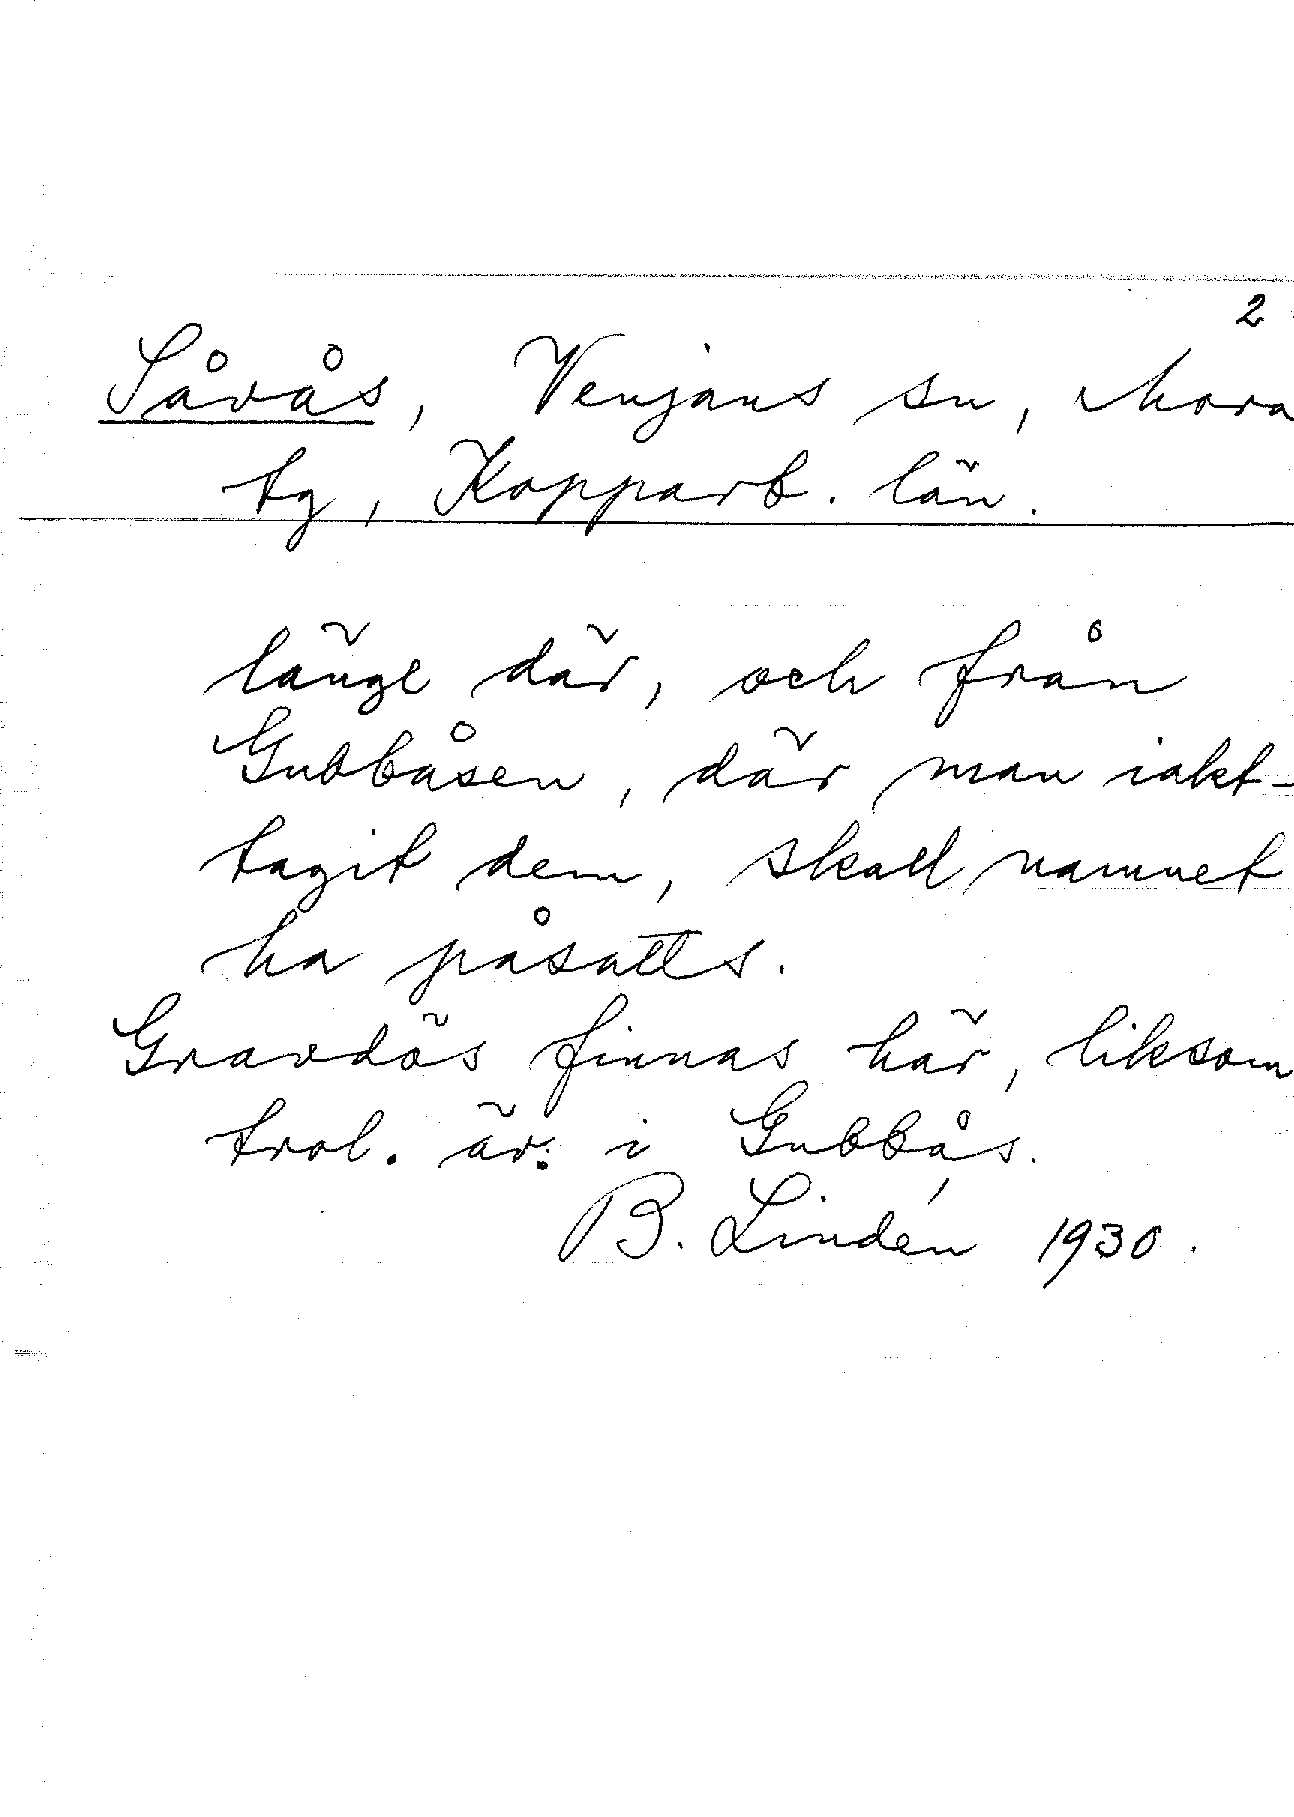 2
Såvås, Venjans sn, Mora
tg, Kopparb. län.
länge där, och från
Gubbåsen, där man iakt-
tagit dem, skall namnet
ha påsatts.
Gravdös finnas här, liksom
trol. är i Gubbås.
B. Lindén 1930.